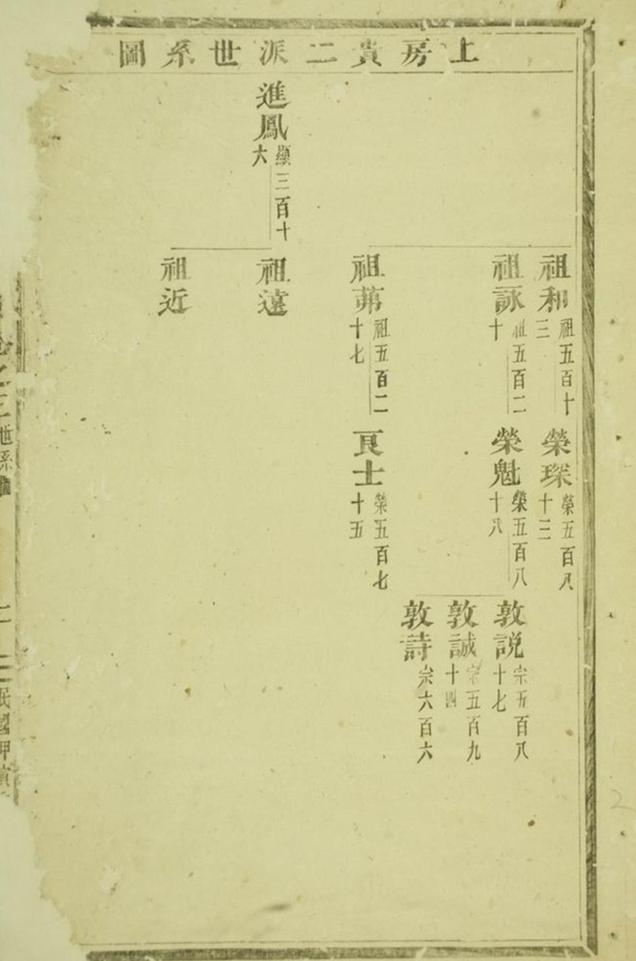 上房貴二派世系圖
祖和
祖五百十
三
榮琛
榮五百八
十三
祖詠
祖五百二
十
榮魁
榮五百八
十八
敦說
宗五百八
十七
敦誠
宗五百九
十四
敦詩
宗六百六
祖茀
祖五百二
十七
良士
榮五百七
十五
進鳳
顯三百十
六
祖遠
祖近
世系
二
民國甲寅